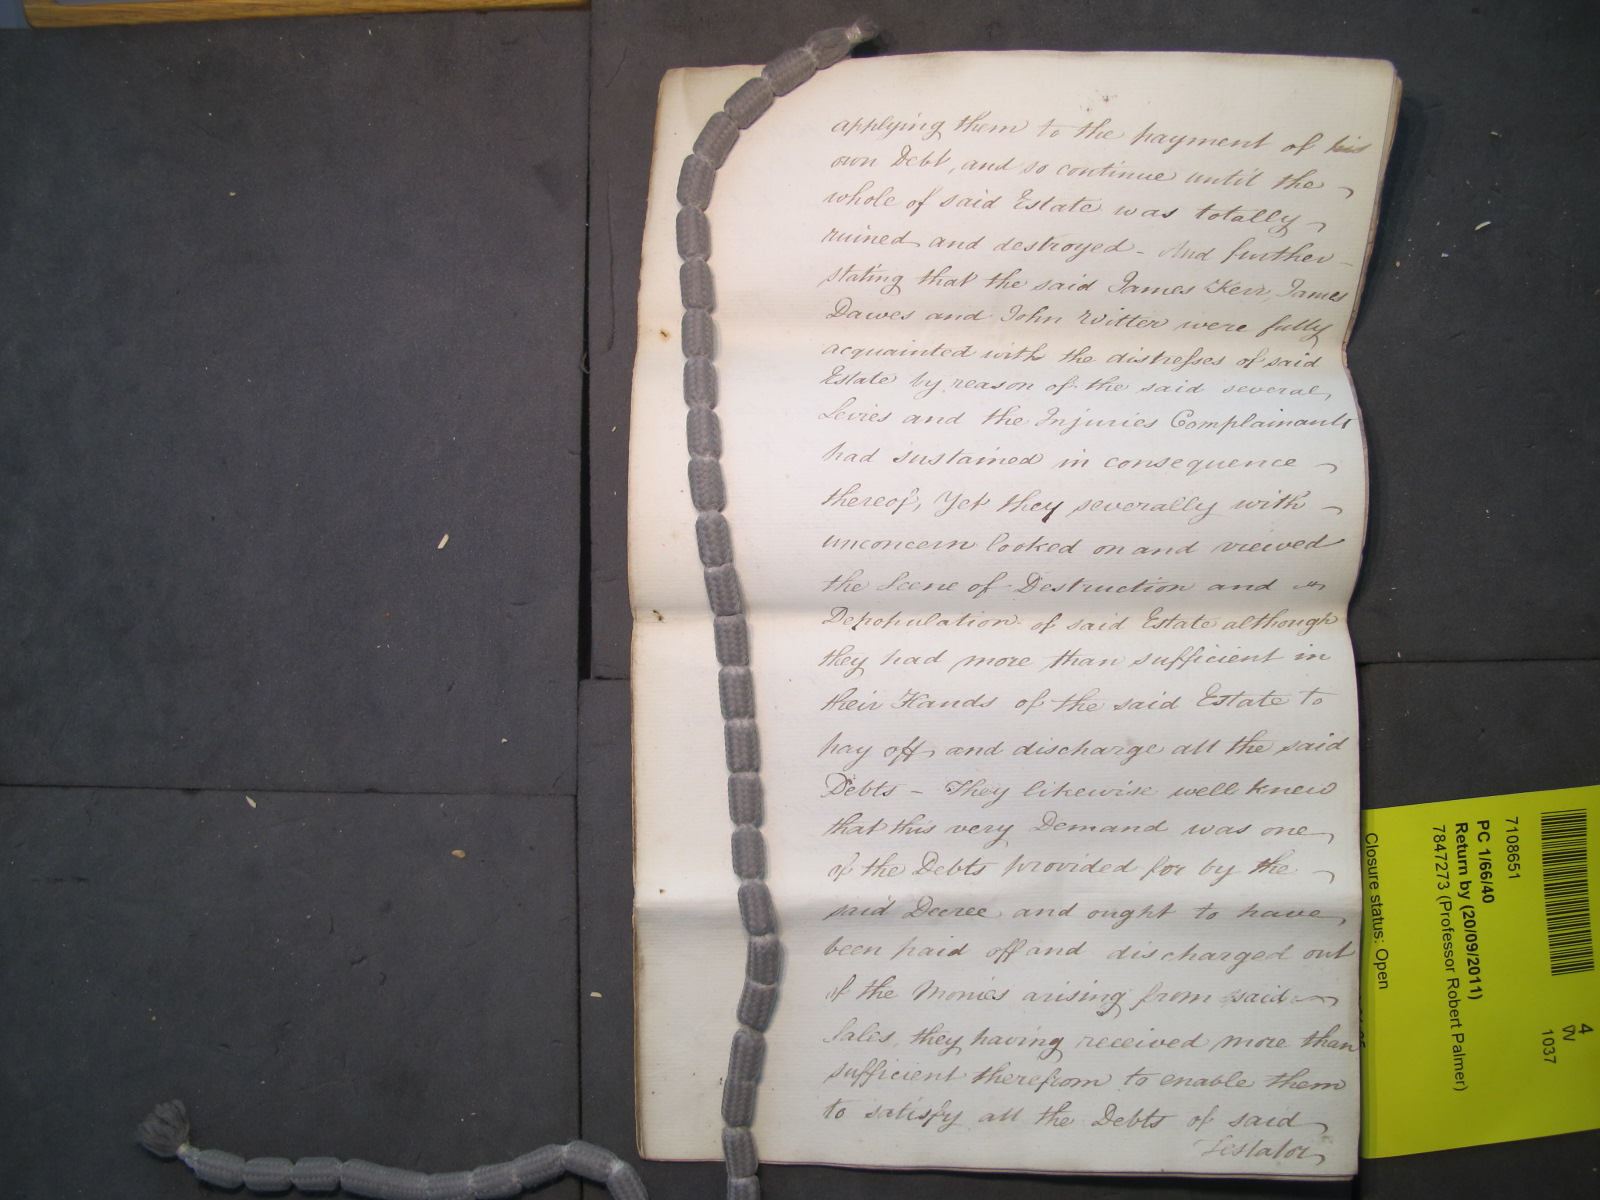 applying them to the payment of his
own Debt, and so continue until the
whole of said Estate was totally
ruined and destroyed - And further -
stating that the said James Kerr, James
Dawes and John Witter were fully
acquainted with the distresses of said
Estate by reason of the said several,
Levies and the Injuries Complainants
had sustained in consequence
thereof, Yet they severally with
unconcern looked on and viewed
the Scene of Destruction and
Depopulation of said Estate although
they had more than sufficient in
their Hands of the said Estate to
pay off, and discharge all the said
Debts - They likewise well knew
that this very Demand was one
of the Debts provided for by the
said Decree and ought to have
been paid off and discharged out
of the Monies arising from said
Sales, they having received more than
sufficient therefrom to enable them
to satisfy all the Debts of said
Testator
7108651
PC 1/66/40
Return by (20/09/2011)
7847273 (Professor Robert Palmer)
Closure status: Open
4
W
1037